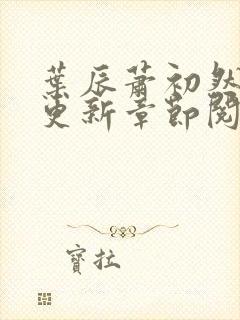 葉辰蕭初然
更新章節閱
寶拉